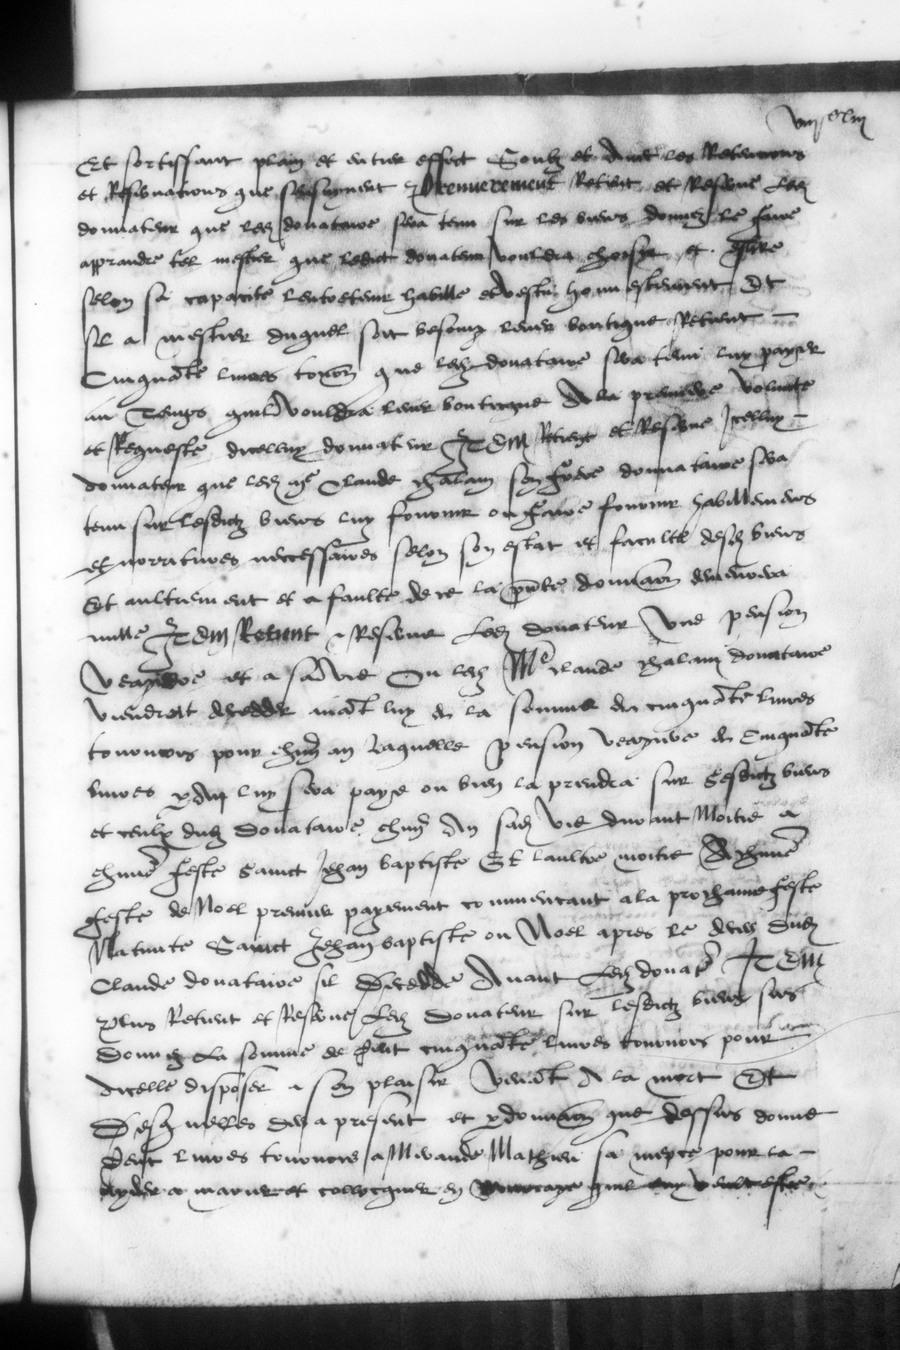 Et sortissant plain et entier effect Soubz et Avec les Retencions
et Reservacions que sensuyvent Premierement Retient et Reserve Led
donnateur que led donataire sera tenu sur les biens donnez le faire
apprandre tel mestier que ledict donateur vouldra choisir et eslire
selon sa capacite lentretenir habille et vestu honnestement Et
sil a mestier duquel soit besoing lever boutique Retient
Cinquante livres tourn que led donataire sera tenu luy payer
au Temps quil vouldra lever boutique A la premiere volunte
et Requeste dicelluy donnateur Item Retient et Reserve Icelluy
donnateur que led me Claude chalam son frere donnataire sera
tenu sur lesdictz biens luy fournir ou faire fournir habillemens
et norritures neccessaires selon son estat et faculte desd biens
Et aultrement et a faulte de ce la pnte donnaon deviendra
nulle Item Retient & Reserve Led donateur Une pension
Et a sa vie Ou led Me claude chalam donataire
viendroit deceder avāt luy de la somme de cinquāte livres
tournois pour chun an laquelle pension de Cinquāte
livres luy sera paye ou bien la prendra sur sesdictz biens
et ceulx dud Donataire chun An sad vie durant Moitie a
chune feste sainct Jehan baptiste Et laultre moitie A chune
feste de Noel premier payement commencant a la prochaine feste
Nativite Sainct Jehan baptiste ou Noel apres le deces dud
Claude donataire sil Decedde Avant Led donatr Item
Plus Retient et Reserve Led Donateur sur lesdictz biens sus
Donnez La somme de cent cinquāte livres tournois pour
dicelle disposer a son plaisir vivāt A la mort Et
Desquelles des a present et donnaon que dessus donne
Cent livres tournois a Mathieu sa niepce pour la
ayder a marier et collocquer en mariage quil luy veult estre